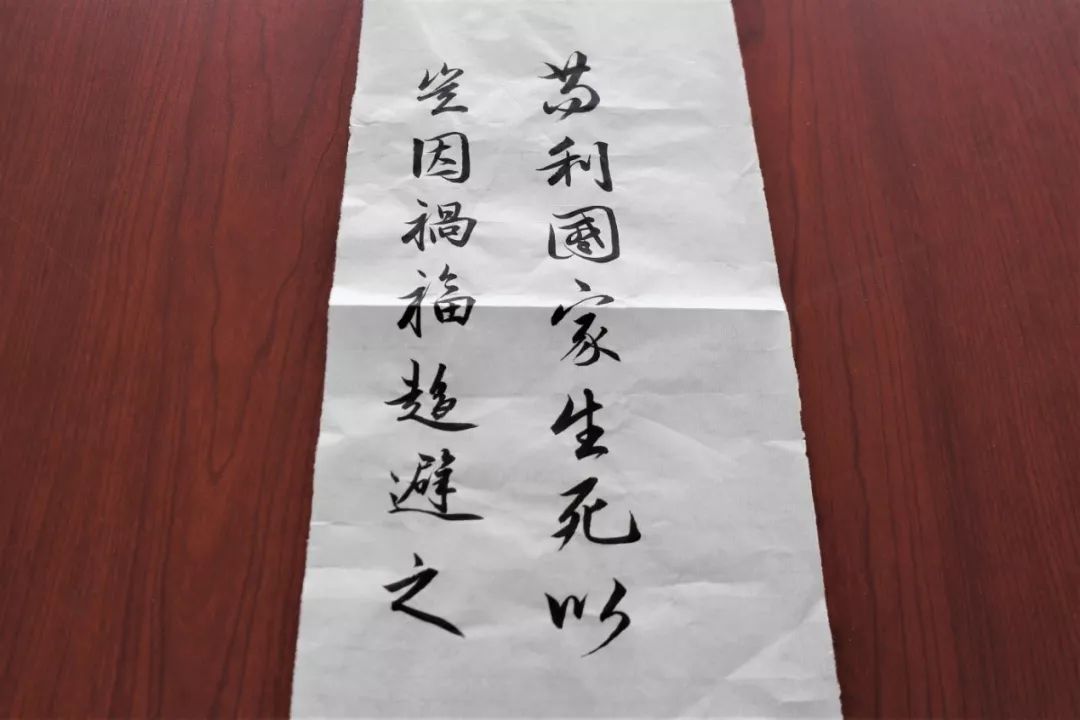 苟利國家生死以
豈因禍福趨避之